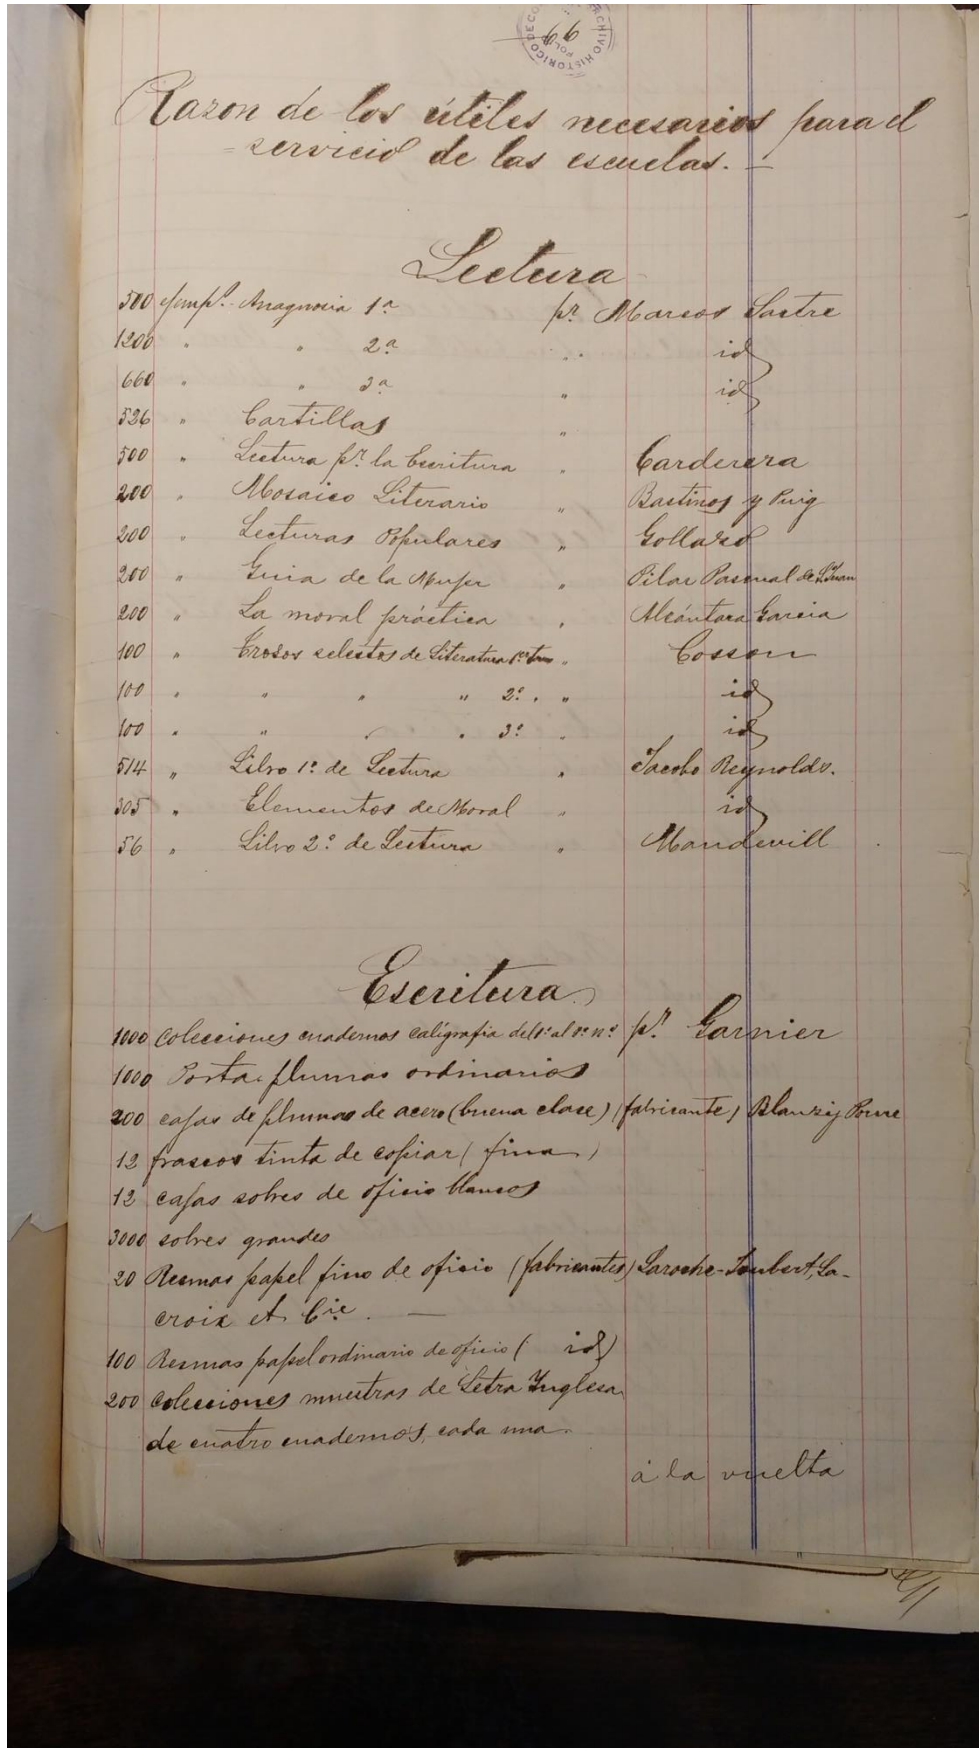 66
ARCHIVO HISTORICO DE CO
Razon de los útiles necesarios para el
servicio de las escuelas. —
Lectura
500 ejemps. Anagnosia 1ª pr. Marcos Sastre
1200 " " 2ª " id
660 " " 3ª " id
526 " Cartillas "
500 " Lectura pr. la Escritura " Carderera
200 " Mosaico Literario " Bastinos y Puig
200 " Lecturas Populares "
200 " Guia de la Mujer " Pilar Pascual de S. Juan
200 " La moral práctica " Alcántara Garcia
100 " Trosos selectos de Literatura 1er tomo " Cosson
100 " " " " 2º " " id
100 " " " " 3º " id
514 " Libro 1º de Lectura " Jacobo Reynolds.
305 " Elementos de Moral " id
56 " Libro 2º de Lectura " Mandevill
Escritura
1000 colecciones cuadernos caligrafia del 1º al 8º nº pr. Garnier
1000 Porta-plumas ordinarios
200 cajas de plumas de acero (buena clase) (fabricante) Blanzy Poure
12 frascos tinta de copiar (fina)
12 cajas sobres de oficio blancos
3000 sobres grandes
20 Resmas papel fino de oficio (fabricantes) Laroche-Joubert, La-
croix et Cie. —
100 Resmas papel ordinario de oficio ( id )
200 colecciones muestras de Letra Inglesa
de cuatro cuadernos, cada una.
á la vuelta